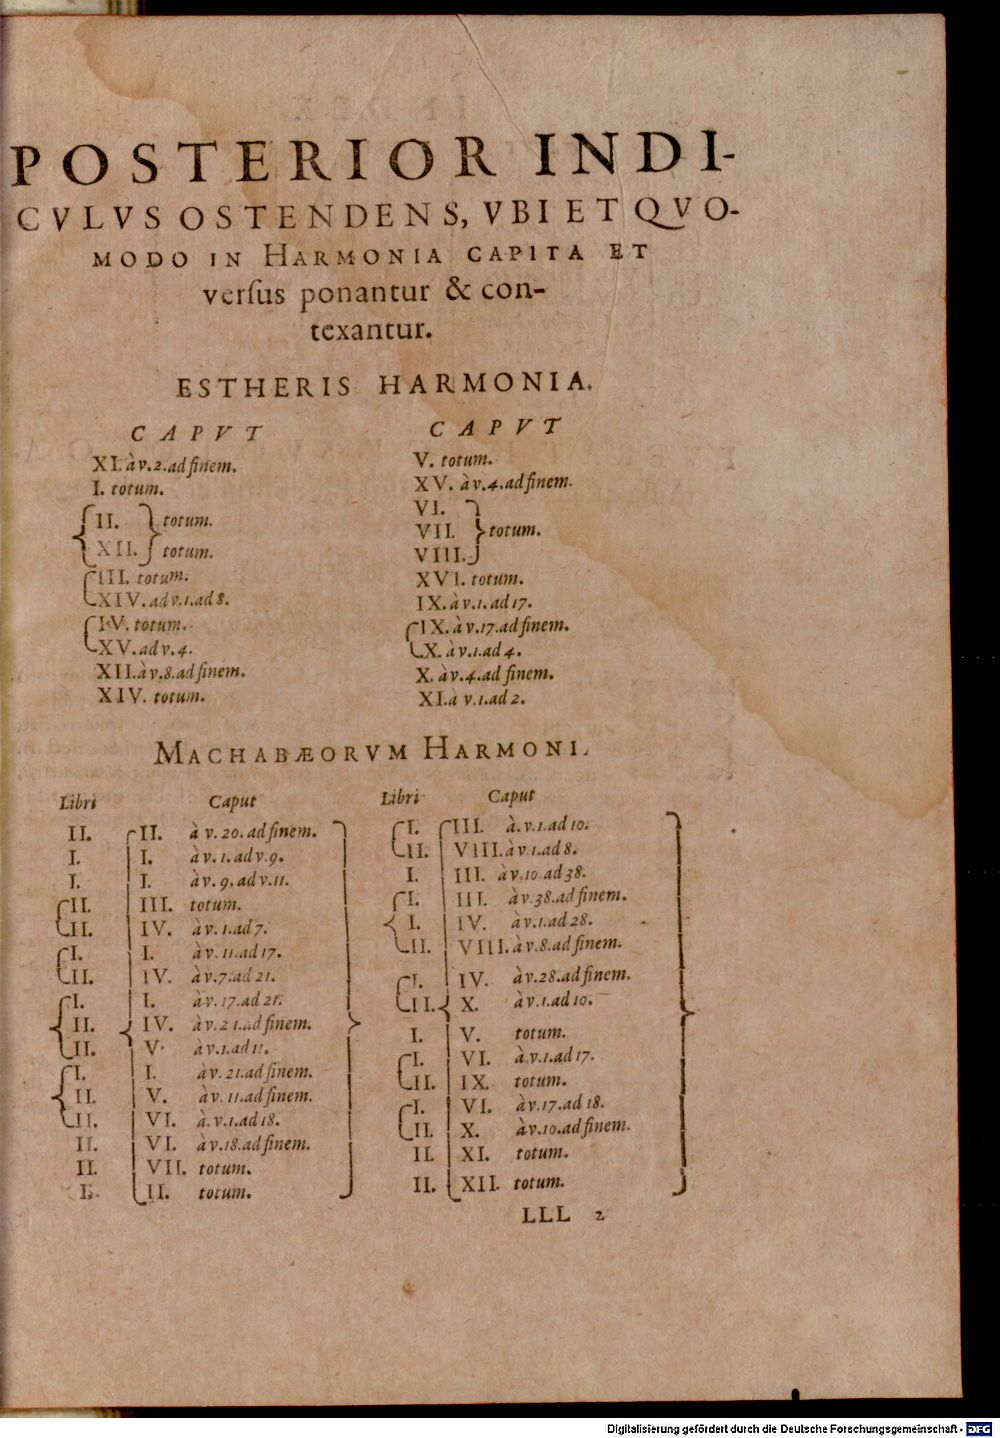 POSTERIOR INDI-
CVLVS OSTENDENS, VBI ET QVO-
MODO IN HARMONIA CAPITA ET
verſus ponantur & con-
texantur.
ESTHERIS HARMONIA.
CAPVT
XI. à v. 2. ad finem.
I. totum.
II. totum.
XII. totum.
III. totum.
XIV. ad v. 1. ad 8.
IV. totum.
XV. ad v. 4.
XII. à v. 8. ad finem.
XIV. totum.
CAPVT
V. totum.
XV. à v. 4. ad finem.
VI.
VII. totum.
VIII.
XVI. totum.
IX. à v. 1. ad 17.
IX. à v. 17. ad finem.
X. à v. 1. ad 4.
X. à v. 4. ad finem.
XI. à v. 1. ad 2.
MACHABÆORVM HARMONI.
Libri Caput
II. II. à v. 20. ad finem.
I. I. à v. 1. ad v. 9.
I. I. à v. 9. ad v. 11.
II. III. totum.
II. IV. à v. 1. ad 7.
I. I. à v. 11. ad 17.
II. IV. à v. 7. ad 21.
I. I. à v. 17. ad 21.
II. IV. à v. 21. ad finem.
II. V. à v. 1. ad 11.
I. I. à v. 21. ad finem.
II. V. à v. 11. ad finem.
II. VI. à. v. 1. ad 18.
II. VI. à v. 18. ad finem.
II. VII. totum.
I. II. totum.
Libri Caput
I. III. à. v. 1. ad 10.
II. VIII. à v. 1. ad 8.
I. III. à v. 10 ad 38.
I. III. à v. 38. ad finem.
I. IV. à v. 1. ad 28.
II. VIII. à v. 8. ad finem.
I. IV. à v. 28. ad finem.
II. X. à v. 1. ad 10.
I. V. totum.
I. VI. à v. 1. ad 17.
II. IX. totum.
I. VI. à v. 17. ad 18.
II. X. à v. 10. ad finem.
II. XI. totum.
II. XII. totum.
LLL 2
Digitalisierung gefördert durch die Deutsche Forschungsgemeinschaft - DFG